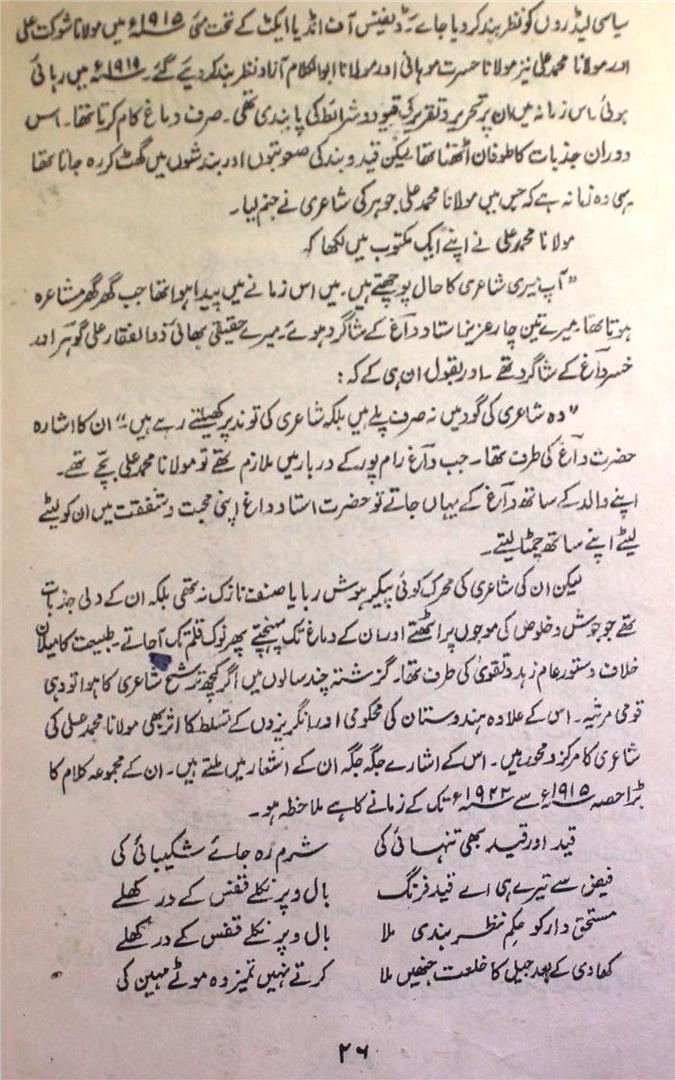 سیاسی لیڈروں کو نظر بند کر دیا جائے۔ ڈیفنس آف انڈیا ایکٹ کے تحت مئی ۱۹۱۵ء میں مولانا شوکت علی
اور مولانا محمد علی نیز مولانا حسرت موہانی اور مولانا ابوالکلام آزاد نظر بند کر دیے گئے۔ ۱۹۱۹ء میں رہائی
ہوئی۔ اس زمانہ میں ان پر تحریر و تقریر کی قیود و شرائط کی پابندی تھی۔ صرف دماغ کام کرتا تھا۔ اس
دوران جذبات کا طوفان اٹھتا تھا لیکن قید و بند کی صعوبتوں اور بندشوں میں گھٹ کر رہ جاتا تھا
یہی وہ زمانہ ہے کہ جس میں مولانا محمد علی جوہر کی شاعری نے جنم لیا۔
مولانا محمد علی نے اپنے ایک مکتوب میں لکھا کہ
”آپ میری شاعری کا حال پوچھتے ہیں۔ میں اس زمانے میں پیدا ہوا تھا جب گھر گھر مشاعرہ
ہوتا تھا۔ میرے تین چار عزیز استاد داغؔ کے شاگرد ہوئے۔ میرے حقیقی بھائی ذوالفقار علی گوہرؔ اور
خسر داغؔ کے شاگرد تھے ۔ اور بقول ان ہی کے کہ :
”وہ شاعری کی گود میں نہ صرف پلے ہیں بلکہ شاعری کی توند پر کھیلتے رہے ہیں۔“ ان کا اشارہ
حضرت داغؔ کی طرف تھا۔ جب داغؔ رام پور کے دربار میں ملازم تھے تو مولانا محمد علی بچے تھے۔
اپنے والد کے ساتھ داغؔ کے یہاں جاتے تو حضرت استاد داغ اپنی محبت و شفقت میں ان کو لیٹے
لیٹے اپنے ساتھ چمٹا لیتے۔
لیکن ان کی شاعری کی محرک کوئی پیکر ہوش ربا یا صنف نازک نہ تھی بلکہ ان کے دلی جذبات
تھے جو جوش و خلوص کی موجوں پر اٹھتے اور ان کے دماغ تک پہنچتے پھر نوک قلم تک آجاتے۔ طبیعت کا میلان
خلاف دستور عام زہد و تقویٰ کی طرف تھا۔ گزشتہ چند سالوں میں اگر کچھ ترشح شاعری کا ہوا تو وہی
قومی مرثیہ۔ اس کے علاوہ ہندوستان کی محکومی اور انگریزوں کے تسلط کا اثر بھی مولانا محمد علی کی
شاعری کا مرکز و محور ہیں۔ اس کے اشارے جگہ جگہ ان کے اشعار میں ملتے ہیں۔ ان کے مجموعہ کلام کا
بڑا حصہ ۱۹۱۵ء سے ۱۹۲۲ء تک کے زمانے کا ہے ملاحظہ ہو۔
قید اور قید بھی تنہائی کی شرم رہ جائے شکیبائی کی
فیض سے تیرے ہی اے قید فرنگ بال و پر نکلے قفس کے در کھلے
مستحق دار کو حکم نظر بندی ملا بال و پر نکلے قفس کے در کھلے
کھادی کے بعد جیل کا خلعت جنھیں ملا کرتے نہیں تمیز وہ موٹے مہین کی
۲۶